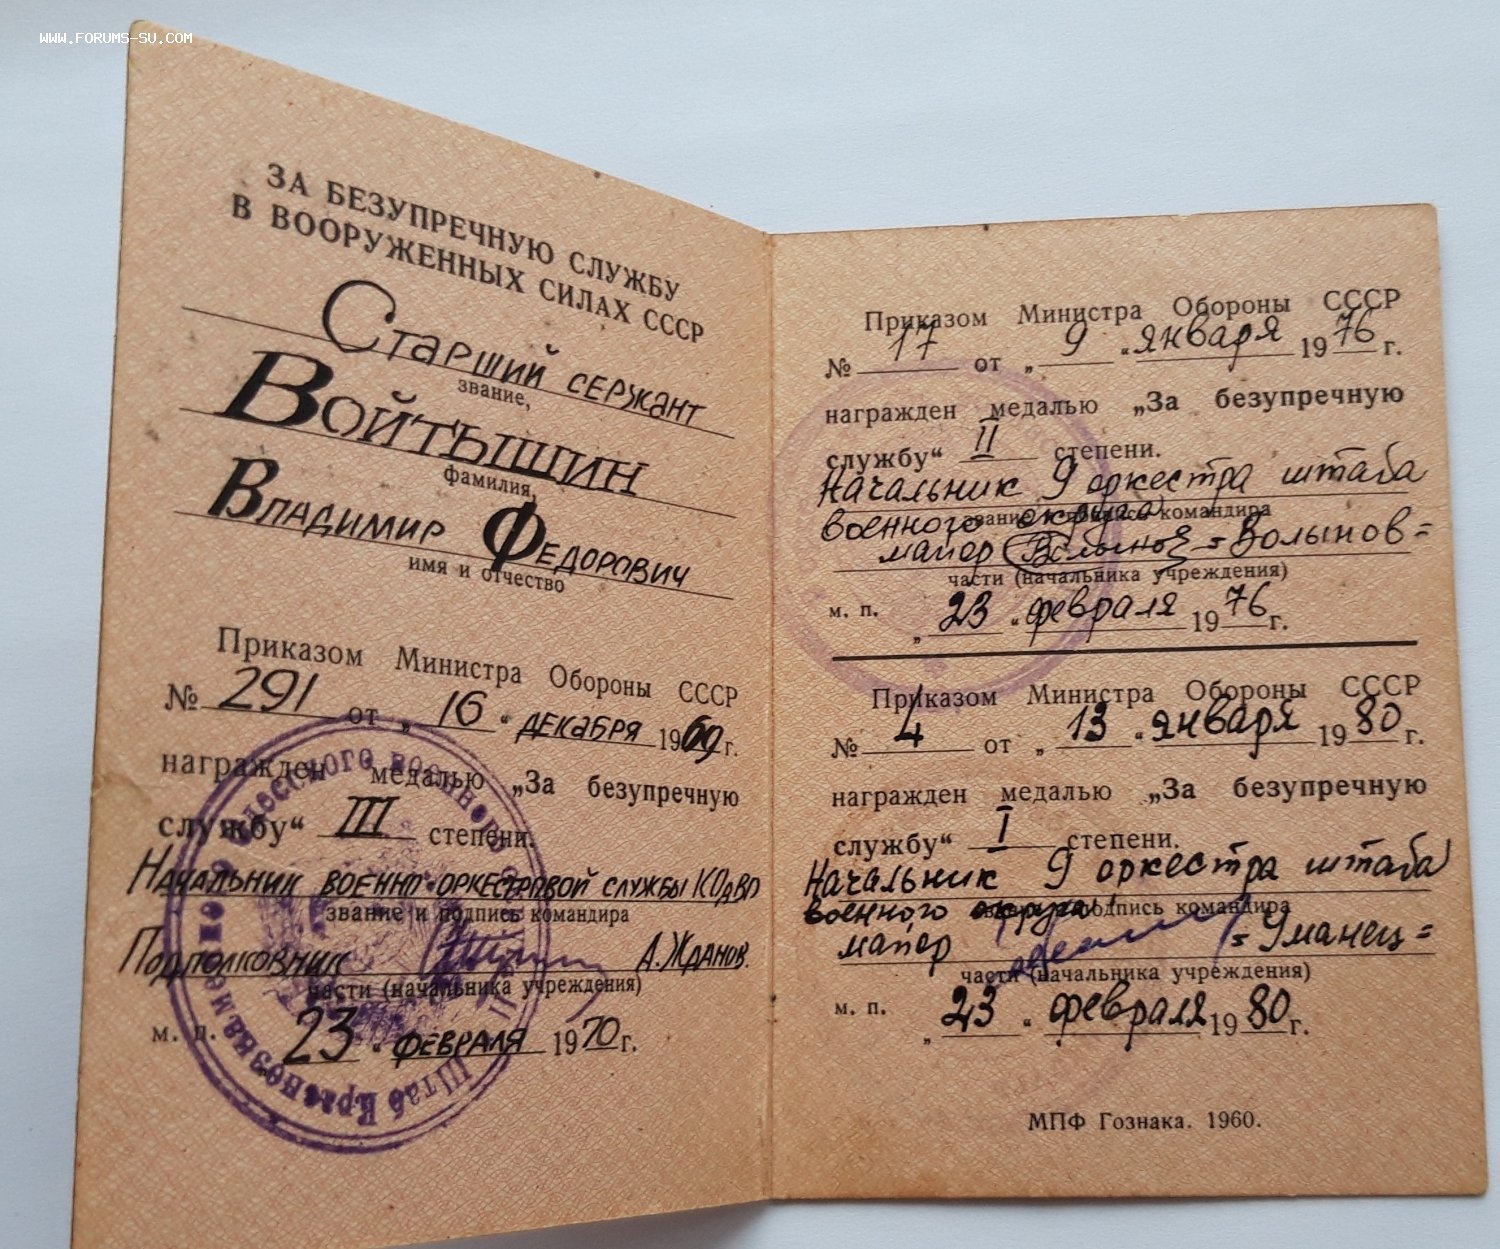 WWW.FORUMS-SU.COM
ЗА БЕЗУПРЕЧНУЮ СЛУЖБУ
В ВООРУЖЕННЫХ СИЛАХ СССР
Старший сержант
звание,
Войтышин
фамилия,
Владимир Федорович
имя и отчество
Приказом Министра Обороны СССР
№ 291 от „16“ декабря 1969 г.
награжден медалью „За безупречную
службу“ III степени.
Начальник военно-оркестровой службы КОдВО
звание и подпись командира
Подполковник А. Жданов.
части (начальника учреждения)
м. п. 23 “ февраля 1970 г.
Штаб Краснознаменного Одесского военного округа
Приказом Министра Обороны СССР
№ 17 от „ 9 “ января 1976 г.
награжден медалью „За безупречную
службу“ II степени.
Начальник 9 оркестра штаба
военного округа
звание и подпись командира
майор =Волынов=
части (начальника учреждения)
м. п.
„ 23 “ февраля 1976 г.
Приказом Министра Обороны СССР
№ 4 от „ 13 “ января 1980 г.
награжден медалью „За безупречную
службу“ I степени.
Начальник 9 оркестра штаба
военного округа
звание и подпись командира
майор =Уманец=
части (начальника учреждения)
м. п.
„ 23 “ февраля 1980 г.
МПФ Гознака. 1960.